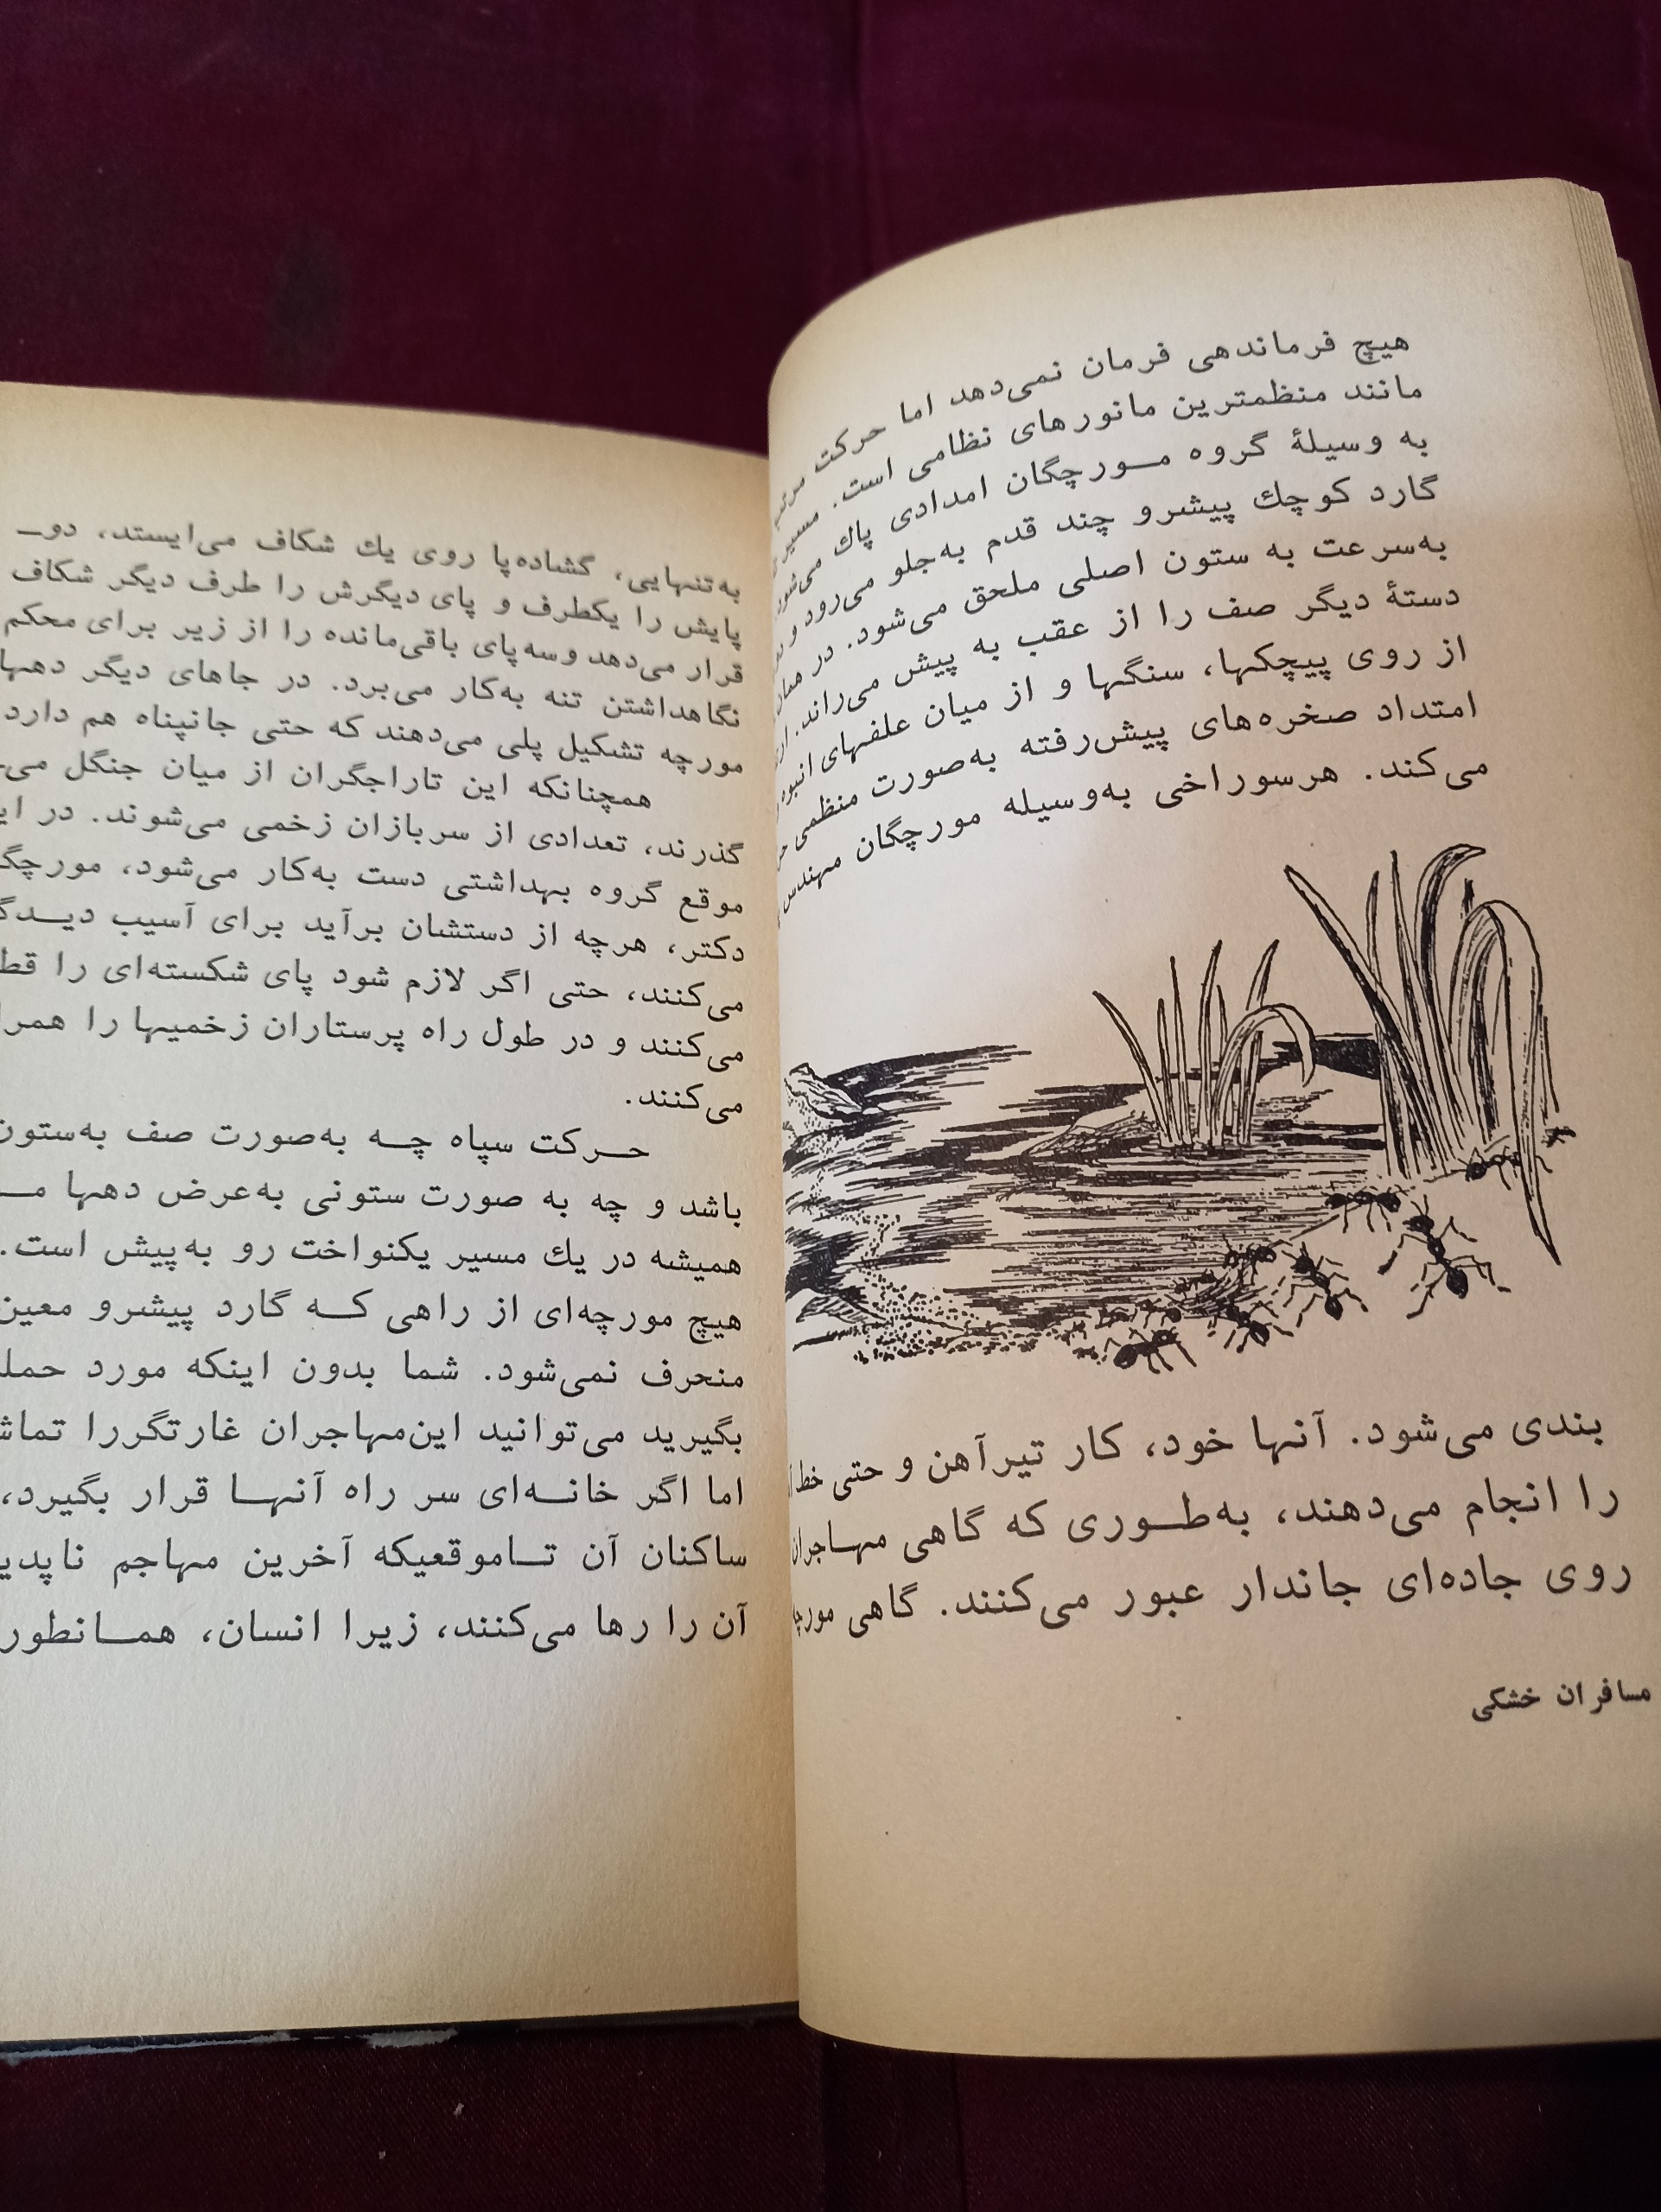 هیچ فرماندهی فرمان نمی‌دهد اما حرکت
مانند منظمترین مانورهای نظامی است. مسیر
به وسیلهٔ گروه مــورچگان امدادی پاك می‌شود
گارد کوچك پیشرو چند قدم به‌جلو می‌رود و
به‌سرعت به ستون اصلی ملحق می‌شود. در
دستهٔ دیگر صف را از عقب به پیش می‌راند.
از روی پیچکها، سنگها و از میان علفهای انبوه
امتداد صخره‌های پیش‌رفته به‌صورت منظمی
می‌کند. هرسوراخی به‌وسیله مورچگان مهندس
بندی می‌شود. آنها خود، کار تیرآهن و حتی خط
را انجام می‌دهند، به‌طــوری که گاهی مهــاجران
روی جاده‌ای جاندار عبور می‌کنند. گاهی
مسافران خشکی
به‌تنهایی، گشاده‌پا روی یك شکاف می‌ایستد، دو‌ـ
پایش را یکطرف و پای دیگرش را طرف دیگر شکاف
قرار می‌دهد وسه‌پای باقی‌مانده را از زیر برای محکم
نگاهداشتن تنه به‌کار می‌برد. در جاهای دیگر دهها
مورچه تشکیل پلی می‌دهند که حتی جانپناه هم دارد
همچنانکه این تاراجگران از میان جنگل می‌ـ
گذرند، تعدادی از سربازان زخمی می‌شوند. در
موقع گروه بهداشتی دست به‌کار می‌شود، مورچگ
دکتر، هرچه از دستشان برآید برای آسیب دیــدگ
می‌کنند، حتی اگر لازم شود پای شکسته‌ای را قط
می‌کنند و در طول راه پرستاران زخمیها را همرا
می‌کنند.
حــرکت سپاه چــه به‌صورت صف به‌ستون
باشد و چه به صورت ستونی به‌عرض دهها مــ
همیشه در یك مسیر یکنواخت رو به‌پیش است.
هیچ مورچه‌ای از راهی کــه گارد پیشرو معین
منحرف نمی‌شود. شما بدون اینکه مورد حمل
بگیرید می‌توانید این‌مهاجران غارتگررا تماش
اما اگر خانــه‌ای سر راه آنهــا قرار بگیرد،
ساکنان آن تــاموقعیکه آخرین مهاجم ناپدی
آن را رها می‌کنند، زیرا انسان، همــانطور